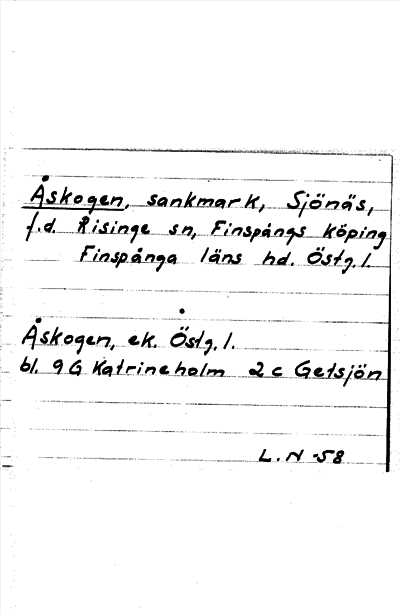 Åskogen, sankmark, Sjönäs,
f.d. Risinge sn, Finspångs köping
Finspånga läns hd. Östg.l.
Åskogen, ek. Östg.l.
bl. 9G Katrineholm 2c Getsjön
L.N -58